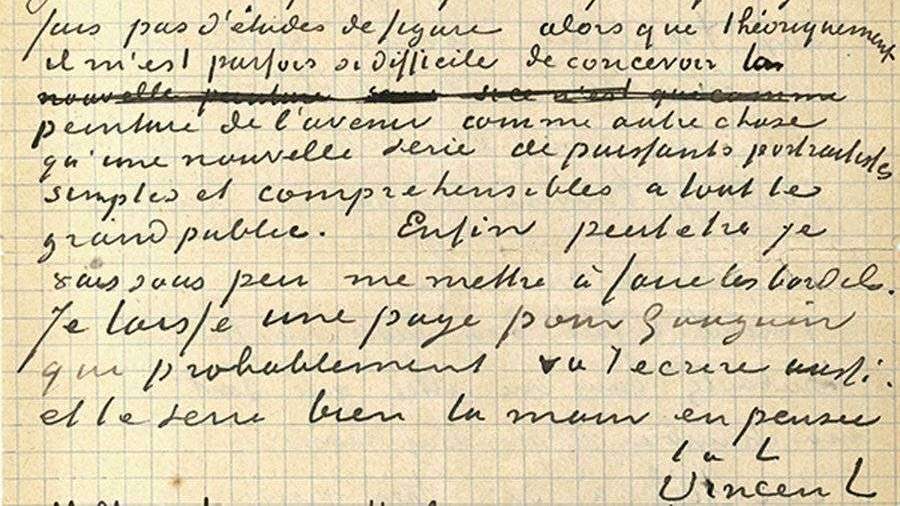 fais pas d'études de figure alors que théoriquement
il m'est parfois si difficile de concevoir la
nouvelle peinture si ce n'est que comme
peinture de l'avenir comme autre chose
qu'une nouvelle serie de puissants portraitistes
simples et comprehensibles a tout le
grand public. Enfin peut etre je
vais sous peu me mettre à faire les bordels.
Je laisse une page pour Gauguin
qui probablement va t'ecrire aussi.
et te serre bien la main en pensée
t. à t.
Vincent